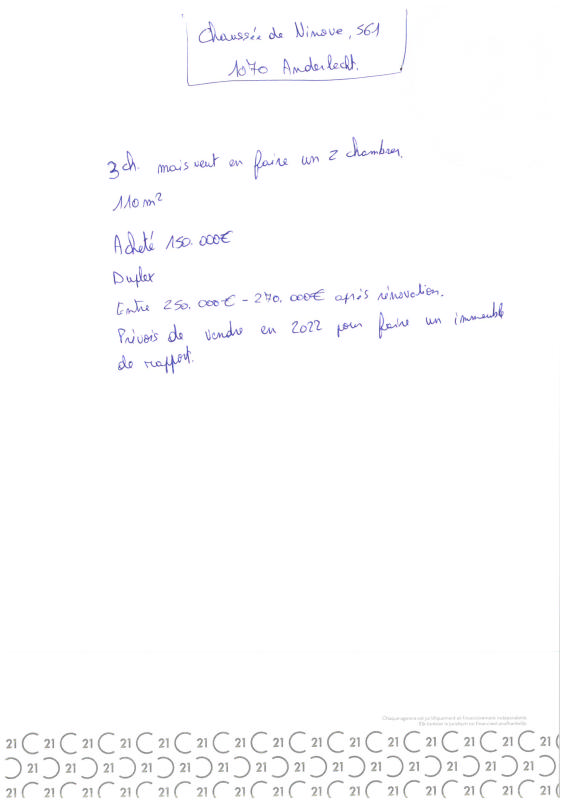 Chaussée de Ninove, 561
1070 Anderlecht.
3 ch. mais veut en faire un 2 chambres.
110 m²
Acheté 150.000€
Duplex
Entre 250.000€ - 270.000€ après rénovation.
Prévois de vendre en 2022 pour faire un immeuble
de rapport.
Chaque agence est juridiquement et financièrement indépendante.
21 21 21 21 21 21 21 21 21 21 21 21 21 21 21
21 21 21 21 21 21 21 21 21 21 21 21 21 21
21 21 21 21 21 21 21 21 21 21 21 21 21 21 21